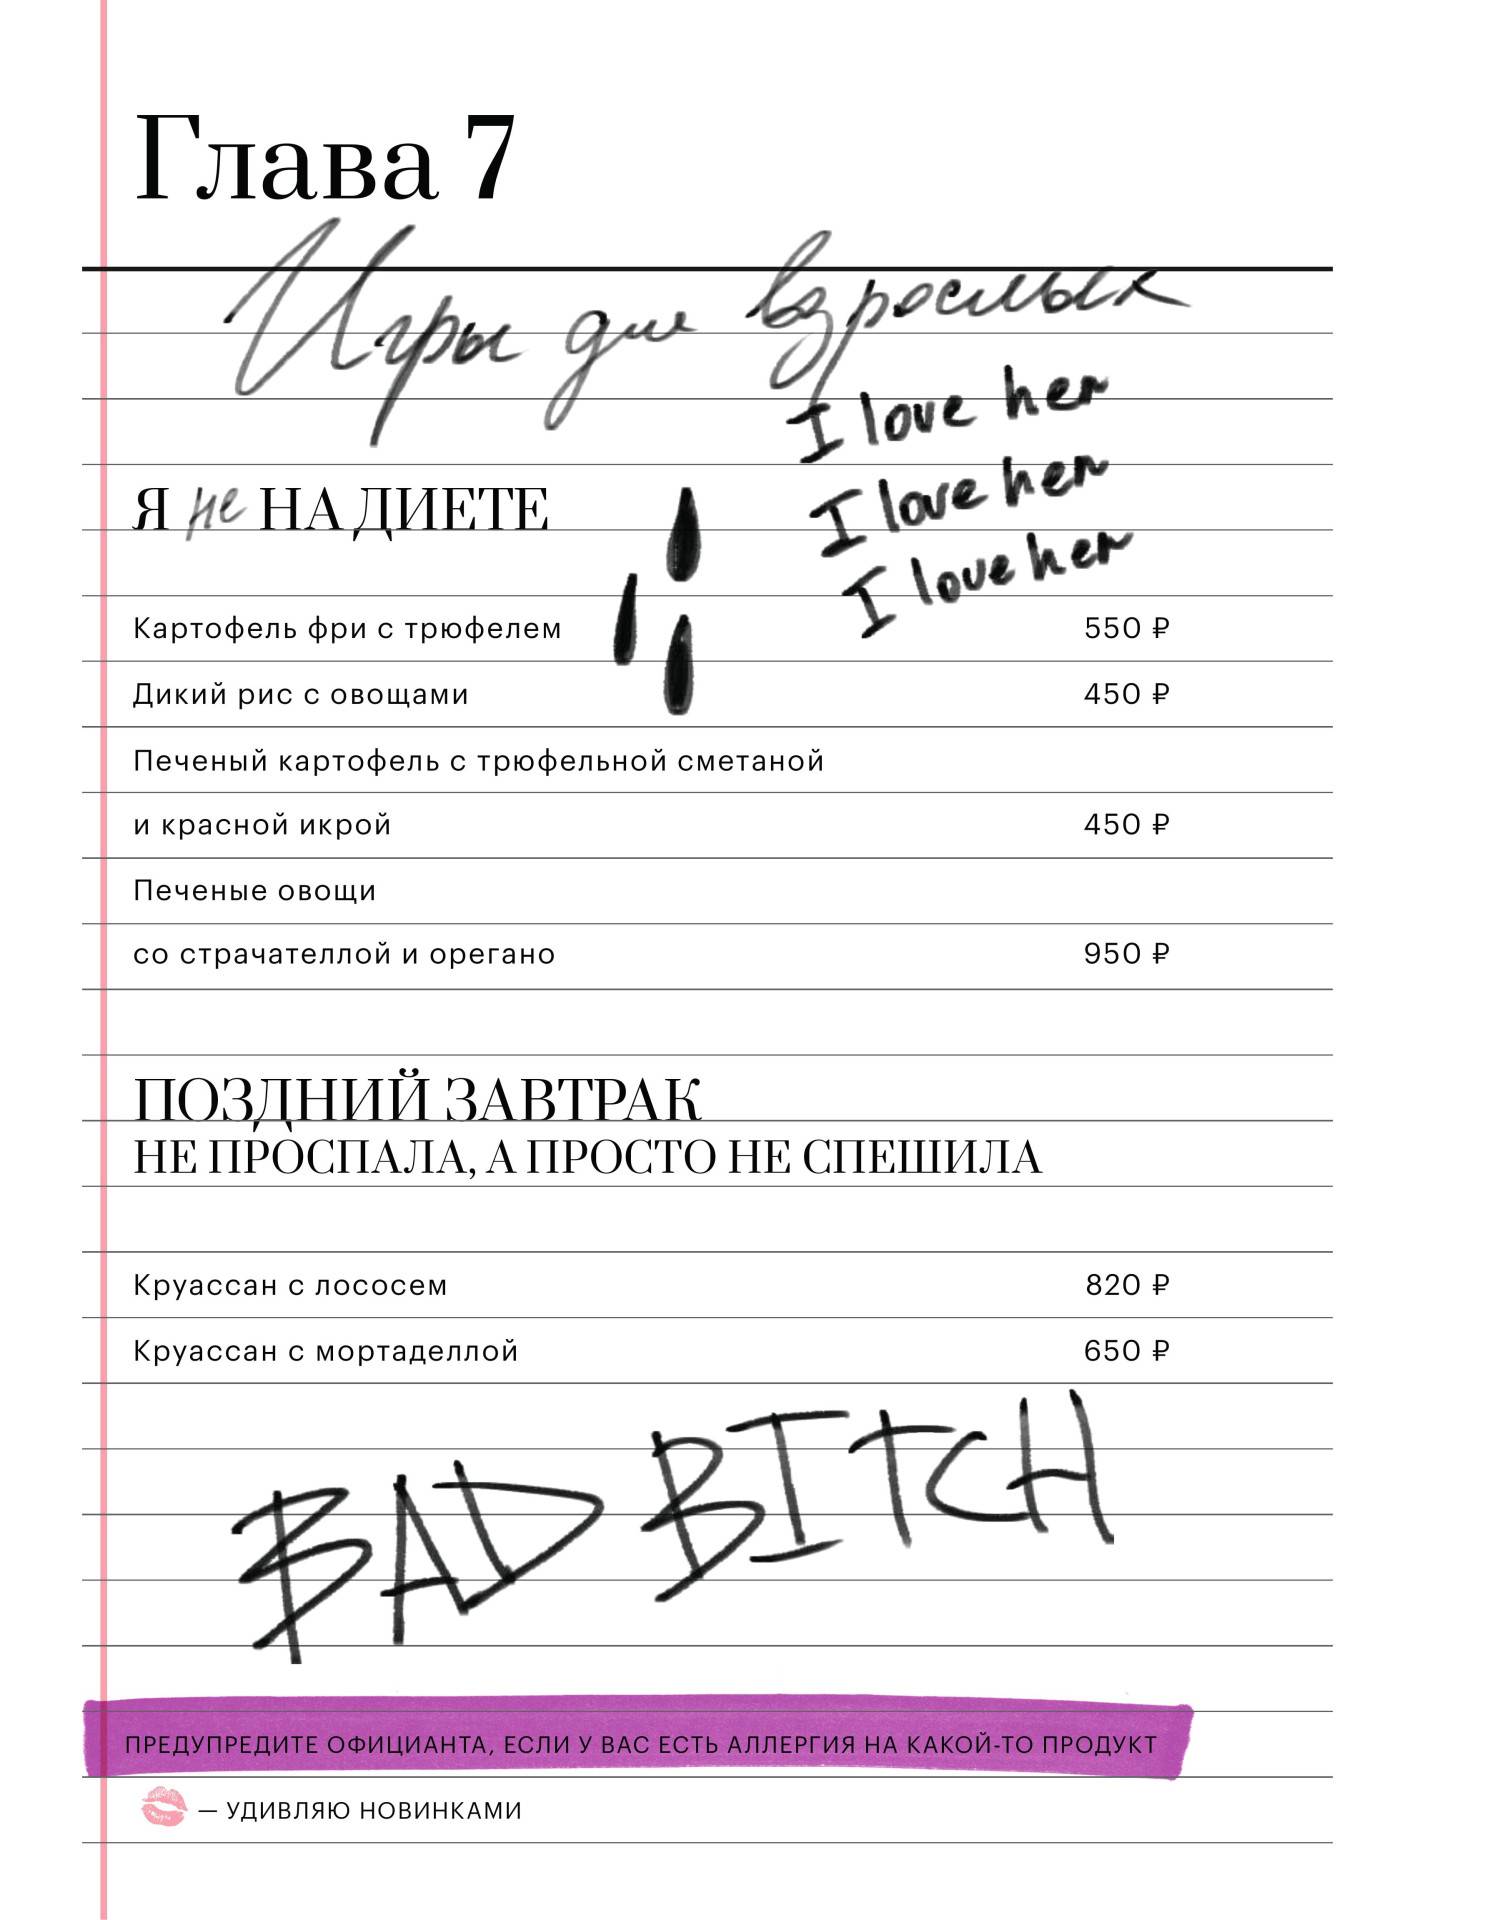 Глава 7
Игры для взрослых
I love her
I love her
I love her
Я не НА ДИЕТЕ
Картофель фри с трюфелем 550 ₽
Дикий рис с овощами 450 ₽
Печеный картофель с трюфельной сметаной
и красной икрой 450 ₽
Печеные овощи
со страчателлой и орегано 950 ₽
ПОЗДНИЙ ЗАВТРАК
НЕ ПРОСПАЛА, А ПРОСТО НЕ СПЕШИЛА
Круассан с лососем 820 ₽
Круассан с мортаделлой 650 ₽
BAD BITCH
ПРЕДУПРЕДИТЕ ОФИЦИАНТА, ЕСЛИ У ВАС ЕСТЬ АЛЛЕРГИЯ НА КАКОЙ-ТО ПРОДУКТ
— УДИВЛЯЮ НОВИНКАМИ